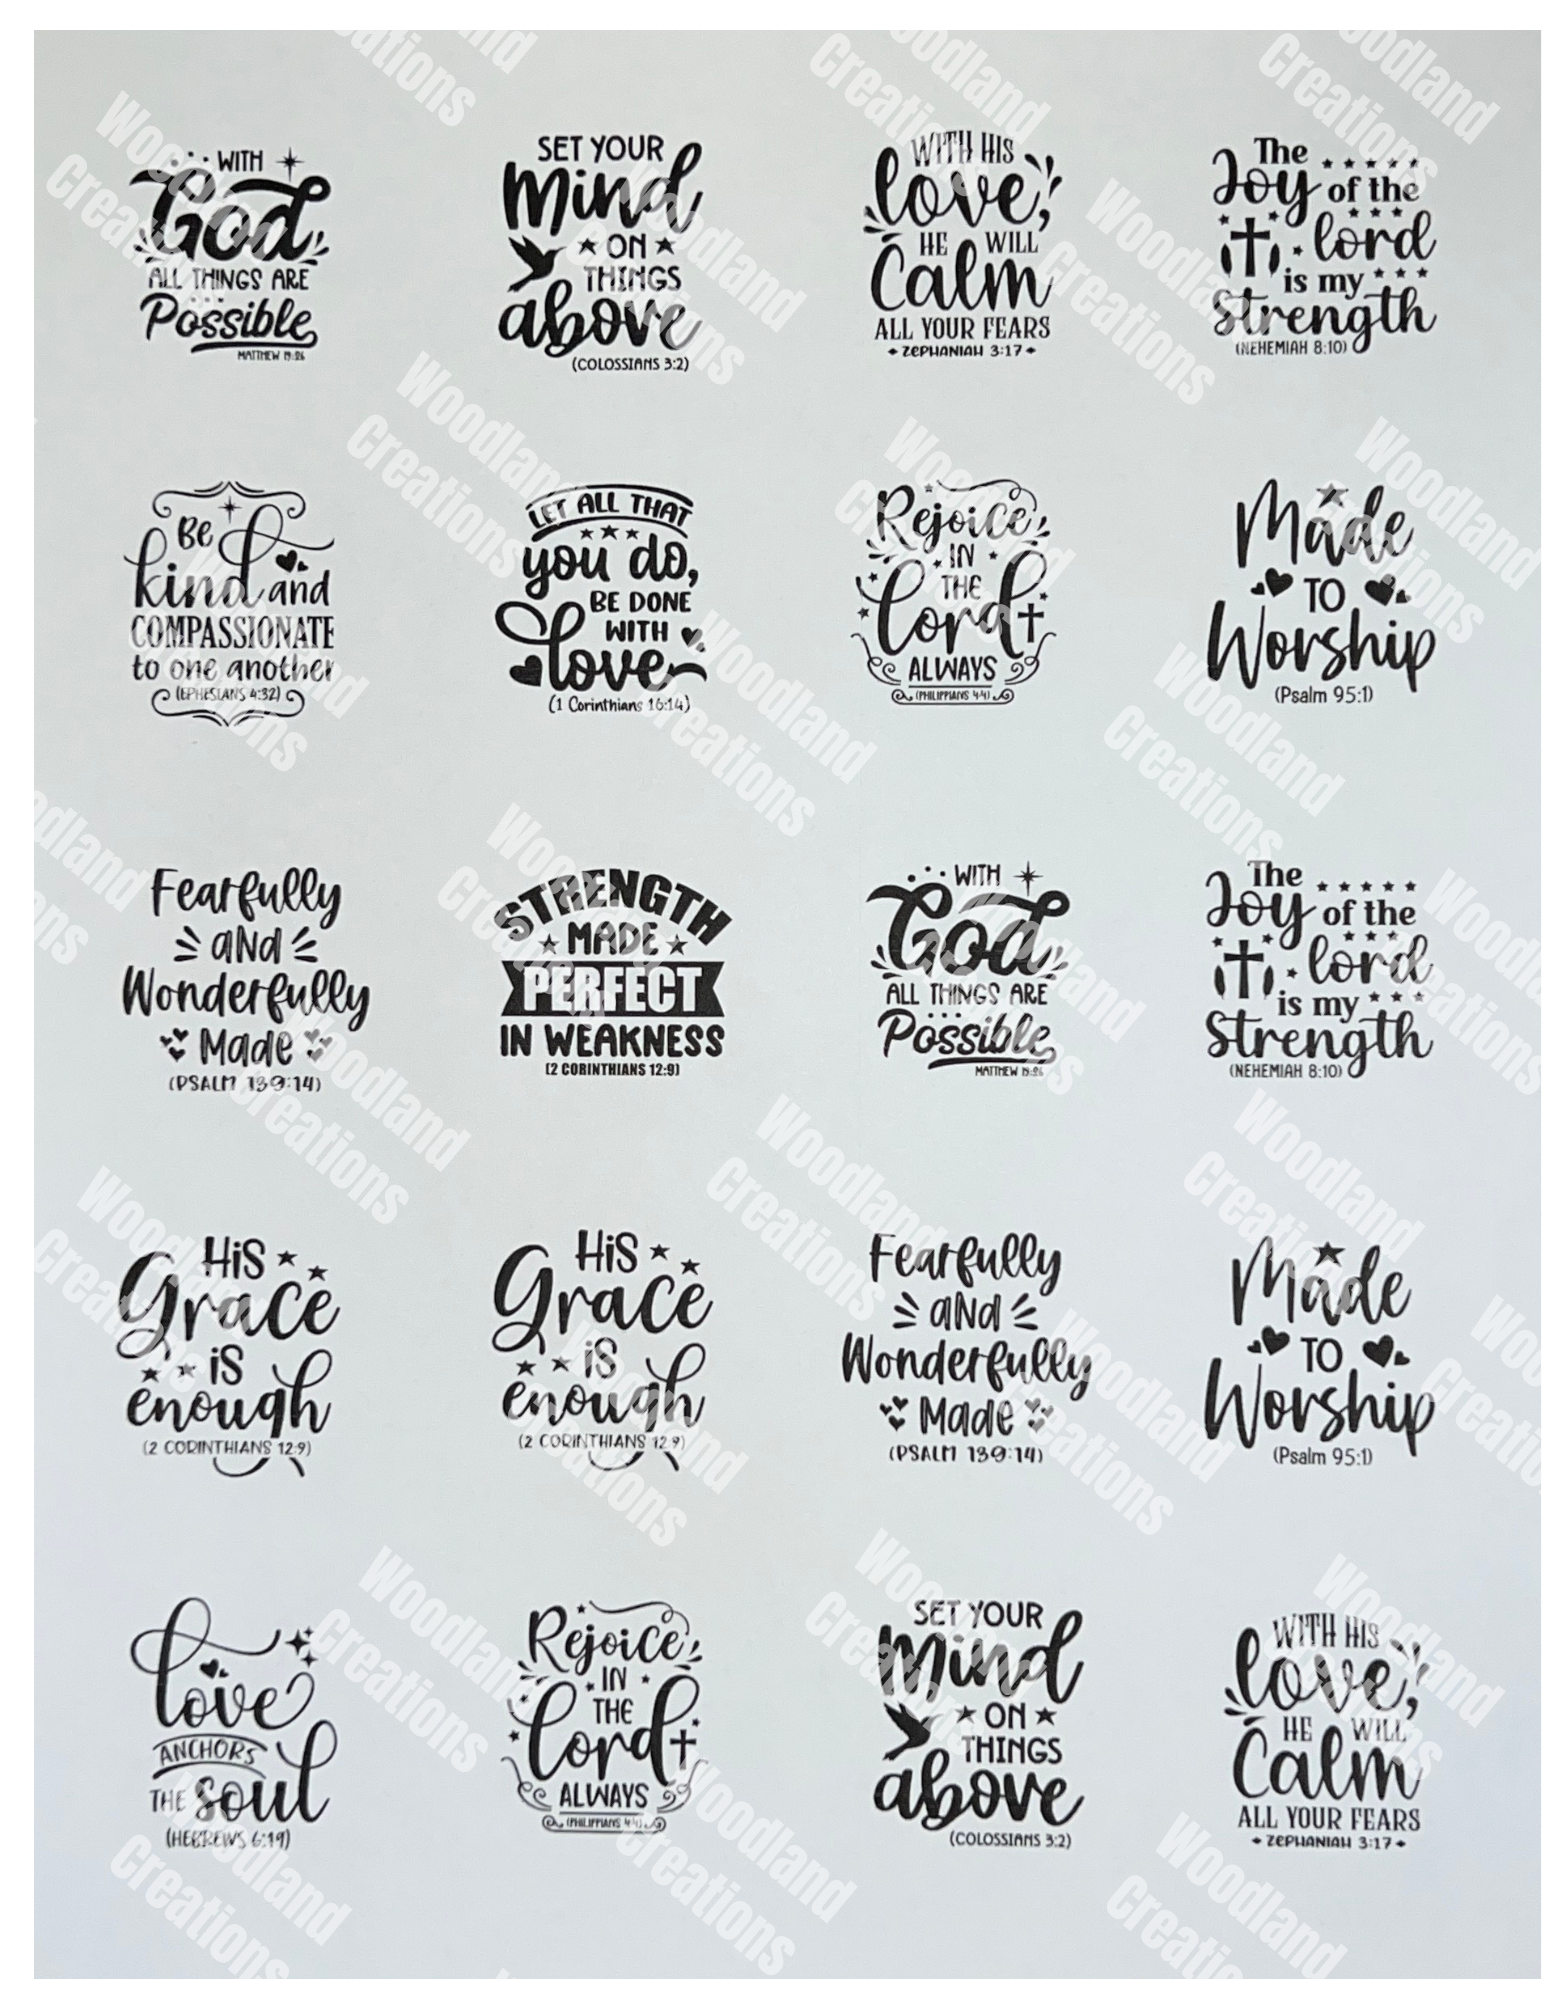 WITH
God
ALL THINGS ARE
Possible
MATTHEW 19:26
SET YOUR
Mind
ON
THINGS
above
(COLOSSIANS 3:2)
WITH HIS
love,
HE WILL
Calm
ALL YOUR FEARS
ZEPHANIAH 3:17
The
Joy
of the
lord
is my
Strength
(NEHEMIAH 8:10)
Be
kind and
COMPASSIONATE
to one another
(EPHESIANS 4:32)
LET ALL THAT
you do,
BE DONE
WITH
love
(1 Corinthians 16:14)
Rejoice
IN
THE
Lord
ALWAYS
(PHILIPPIANS 4:4)
Made
TO
Worship
(Psalm 95:1)
Fearfully
aNd
Wonderfully
Made
(PSALM 139:14)
STRENGTH
MADE
PERFECT
IN WEAKNESS
(2 CORINTHIANS 12:9)
WITH
God
ALL THINGS ARE
Possible
MATTHEW 19:26
The
Joy
of the
lord
is my
Strength
(NEHEMIAH 8:10)
HiS
Grace
iS
enough
(2 CORINTHIANS 12:9)
HiS
Grace
iS
enough
(2 CORINTHIANS 12:9)
Fearfully
aNd
Wonderfully
Made
(PSALM 139:14)
Made
TO
Worship
(Psalm 95:1)
love
ANCHORS
THE soul
(HEBREWS 6:19)
Rejoice
IN
THE
Lord
ALWAYS
(PHILIPPIANS 4:4)
SET YOUR
Mind
ON
THINGS
above
(COLOSSIANS 3:2)
WITH HIS
love,
HE WILL
Calm
ALL YOUR FEARS
ZEPHANIAH 3:17
Woodland
Creations